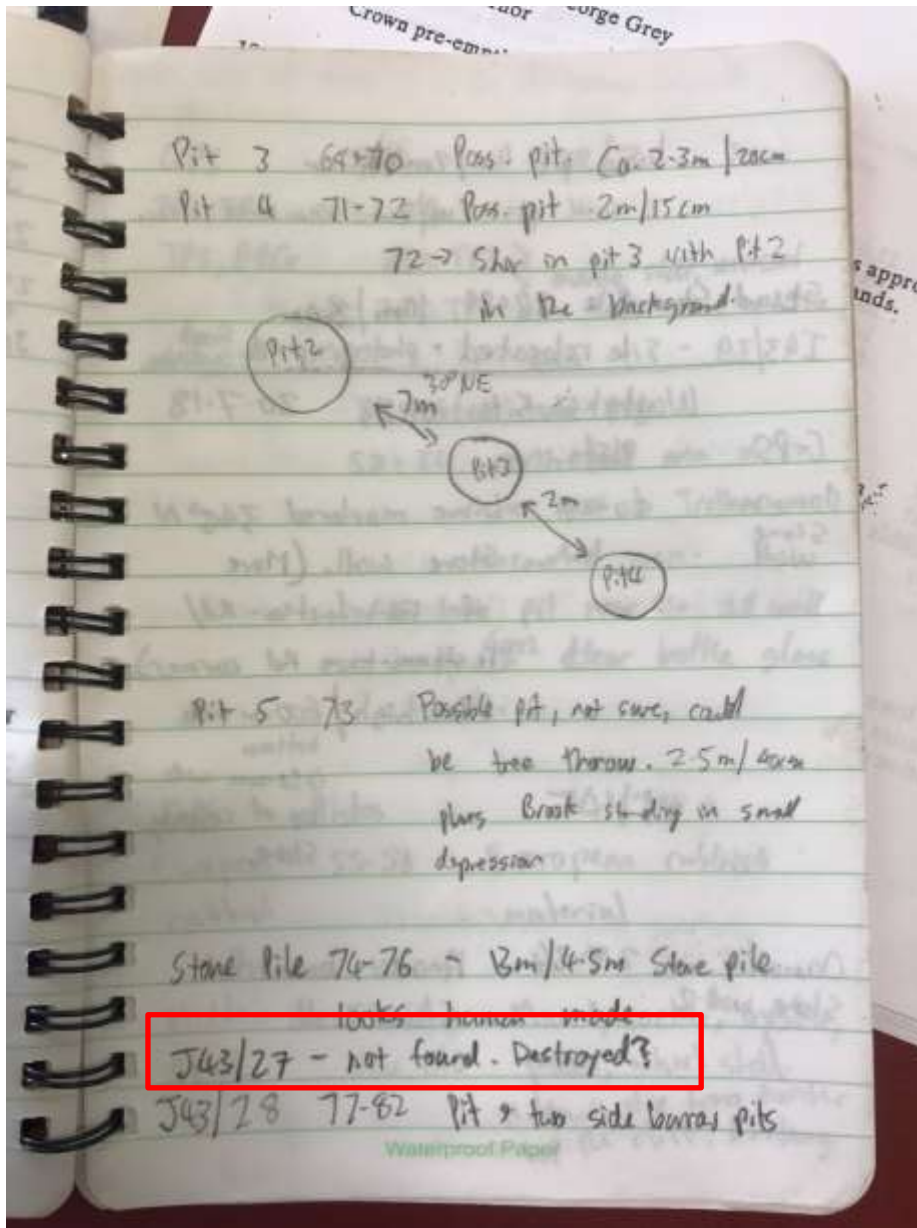 Crown pre-empti
George Grey
s appro
ands.
Pit 3 69-70 Poss. pit, Ca. 2-3m/20cm
Pit 4 71-72 Poss. pit 2m/15cm
72 → Shor in pit 3 with Pit 2
in the background.
Pit 2
30° NE
7m
Pit 3
2m
Pit 4
Pit 5 73 Possible pit, not sure, could
be tree throw. 2.5m/40cm
plus Brook standing in small
depression
Stone Pile 74-76 - 13m/4.5m Stone pile
looks human made
J43/27 - not found. Destroyed?
J43/28 77-82 Pit + two side borrow pits
Waterproof Paper